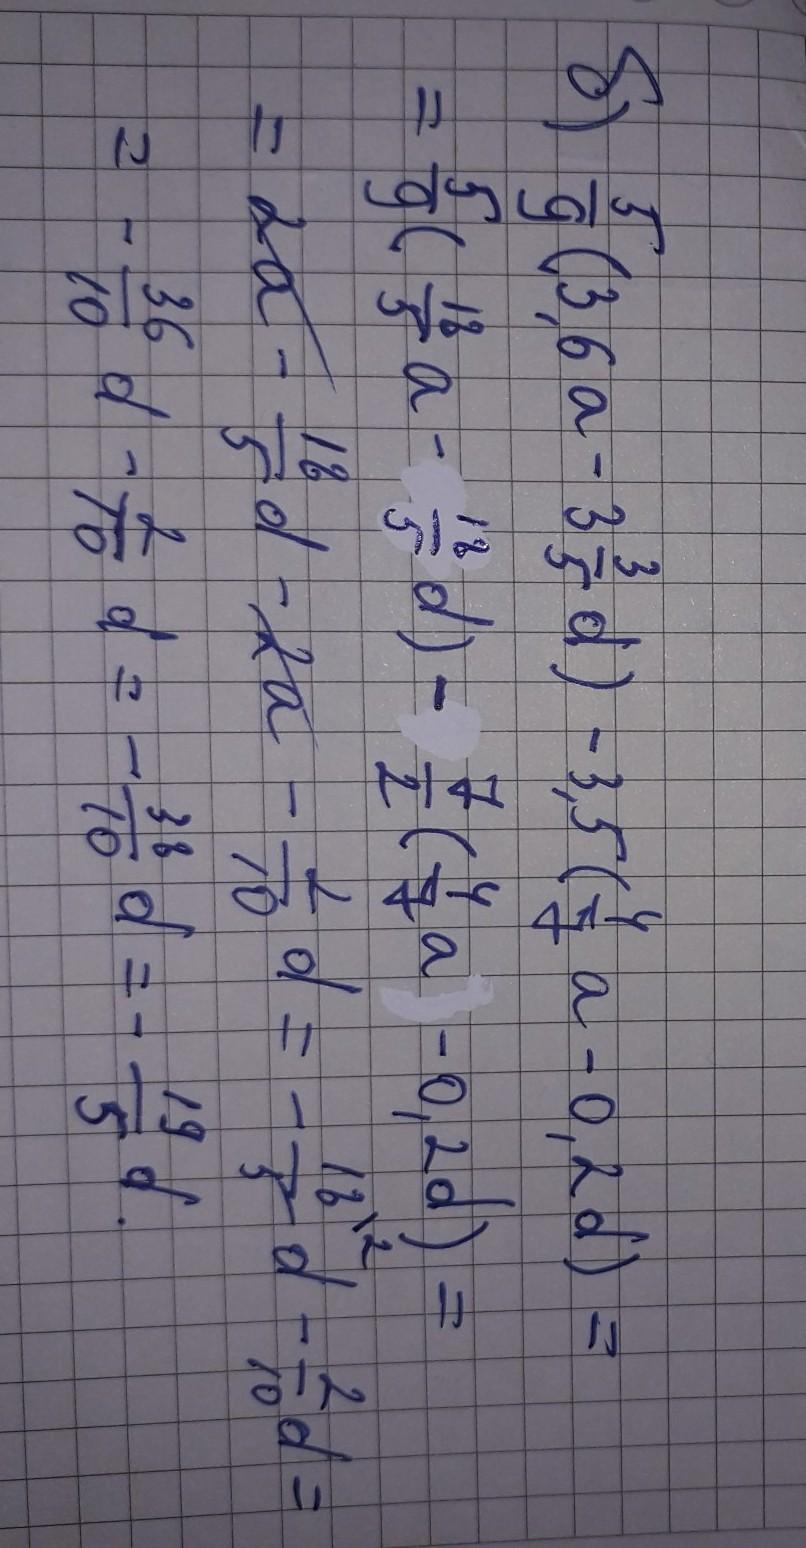 б) 5/9 (3,6a - 3 3/5 d) - 3,5 (4/7 a - 0,2d) =
= 5/9 ( 18/5 a - 18/5 d) - 7/2 ( 4/7 a - 0,2d) =
= 2a - 18/5 d - 2a - 2/10 d = - 18\2/5 d - 2/10 d =
= - 36/10 d - 2/10 d = - 38/10 d = - 19/5 d.